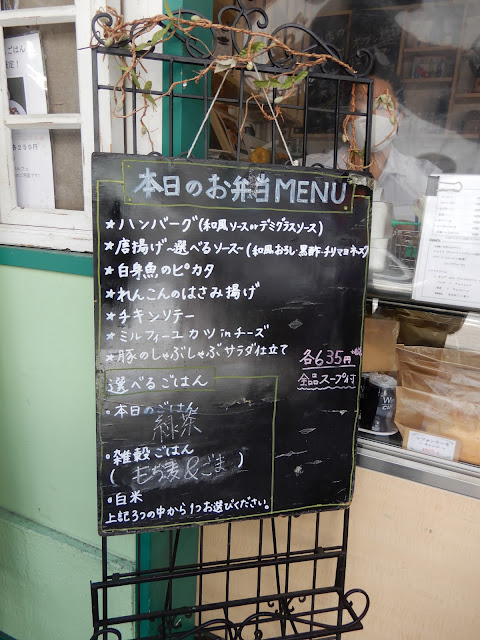 本日のお弁当MENU
★ハンバーグ(和風ソースorデミグラスソース)
★唐揚げ~選べるソース~(和風おろし・黒酢・チリマヨネーズ)
★白身魚のピカタ
★れんこんのはさみ揚げ
★チキンソテー
★ミルフィーユカツinチーズ
★豚のしゃぶしゃぶサラダ仕立て
各635円
全品スープ付
選べるごはん
・本日のごはん
緑茶
・雑穀ごはん
(もち麦&ごま)
・白米
上記3つの中から1つお選びください。
ごはん
各200円